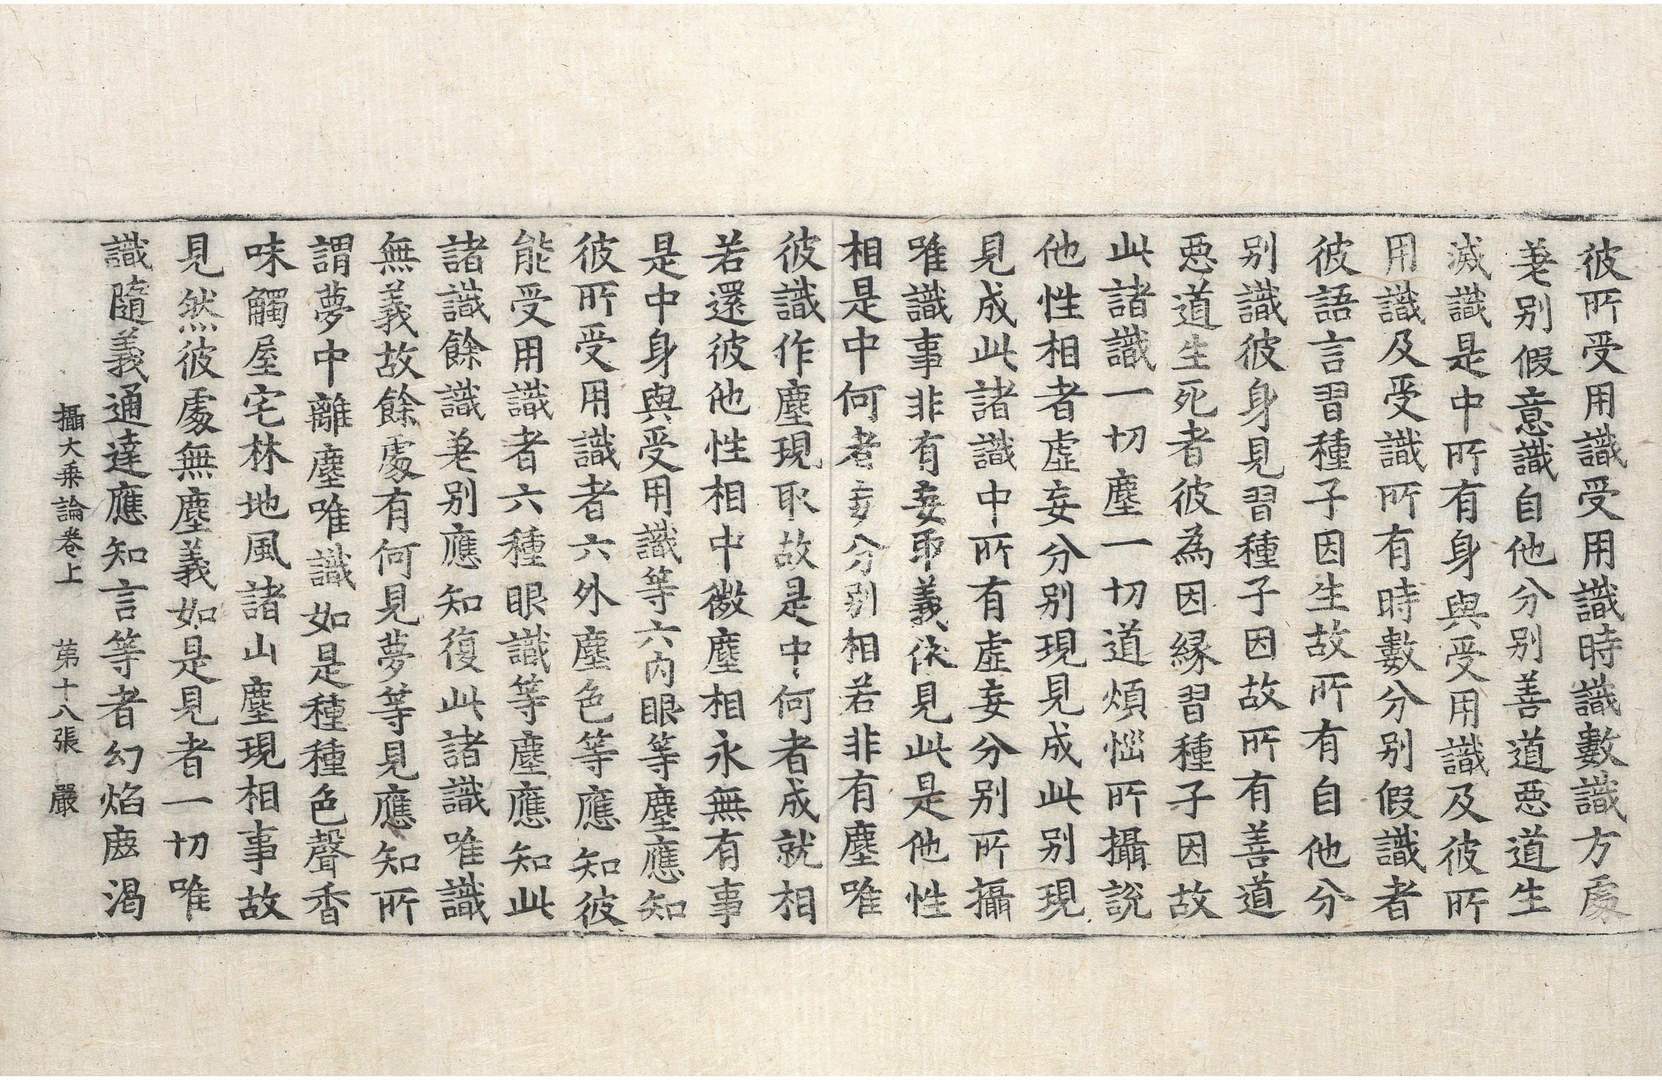 彼所受用識受用識時識數識方處
差别假意識自他分别善道惡道生
滅識是中所有身與受用識及彼所
用識及受識所有時數分别假識者
彼語言習種子因生故所有自他分
别識彼身見習種子因故所有善道
惡道生死者彼為因縁習種子因故
此諸識一切塵一切道煩惱所攝說
他性相者虛妄分别現見成此别現
見成此諸識中所有虛妄分别所攝
唯識事非有妄取義依見此是他性
相是中何者妄分别相若非有塵唯
彼識作塵現取故是中何者成就相
若還彼他性相中微塵相永無有事
是中身與受用識等六内眼等塵應知
彼所受用識者六外塵色等應知彼
能受用識者六種眼識等塵應知此
諸識餘識差别應知復此諸識唯識
無義故餘處有何見夢等見應知所
謂夢中離塵唯識如是種種色聲香
味觸屋宅林地風諸山塵現相事故
見然彼處無塵義如是見者一切唯
識隨義通達應知言等者幻焰鹿渴
攝大乘論卷上 第十八張 嚴